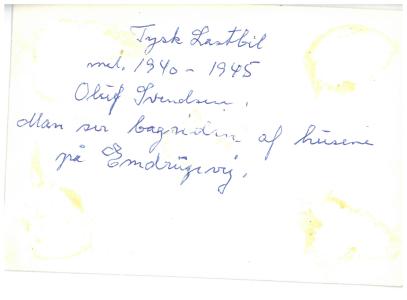 Tysk Lastbil
mel. 1940 - 1945
Oluf Svendsen.
Man ser bagsiden af husene
på Emdrupvej.